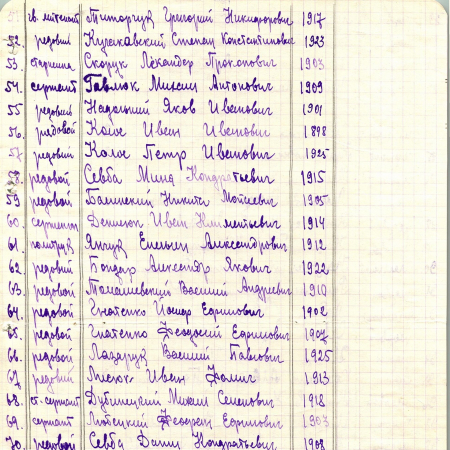 гв. лейтенант Титорчук Григорий Никифорович 1917
52. редовий Кучаковский Степан Константинович 1923
53. старшина Скорук Лександер Прокопович 1903
54. сержант Гавлюк Михаил Антонович 1909
55 редовий Надольний Яков Иванович 1901
56. редовой Колос Иван Иванович 1898
57 редовий Колос Петр Иванович 1925
58. редовой Севба Мина Кондратьевич 1915
59. редовой Балинский Никита Моисеевич 1905
60. сержант Денисюк Иван Климентьевич 1914
61. политрук Янчук Емельян Александрович 1912
62. редовий Бондар Александр Якович 1922
63. редовой Томашевский Василий Андреевич 1910
64. редовой Гнатенко Иосип Ефимович 1902
65. редовой Гнатенко Феодосий Ефимович 1907
66. редовой Лазарук Василий Павлович 1925
67 редовий Лисюк Иван Фомич 1913
68. ст. сержант Дубницкий Михаил Семенович 1918
69. сержант Любецкий Ефимович 1903
70. редовой Севба Данил Кондратьевич 1908